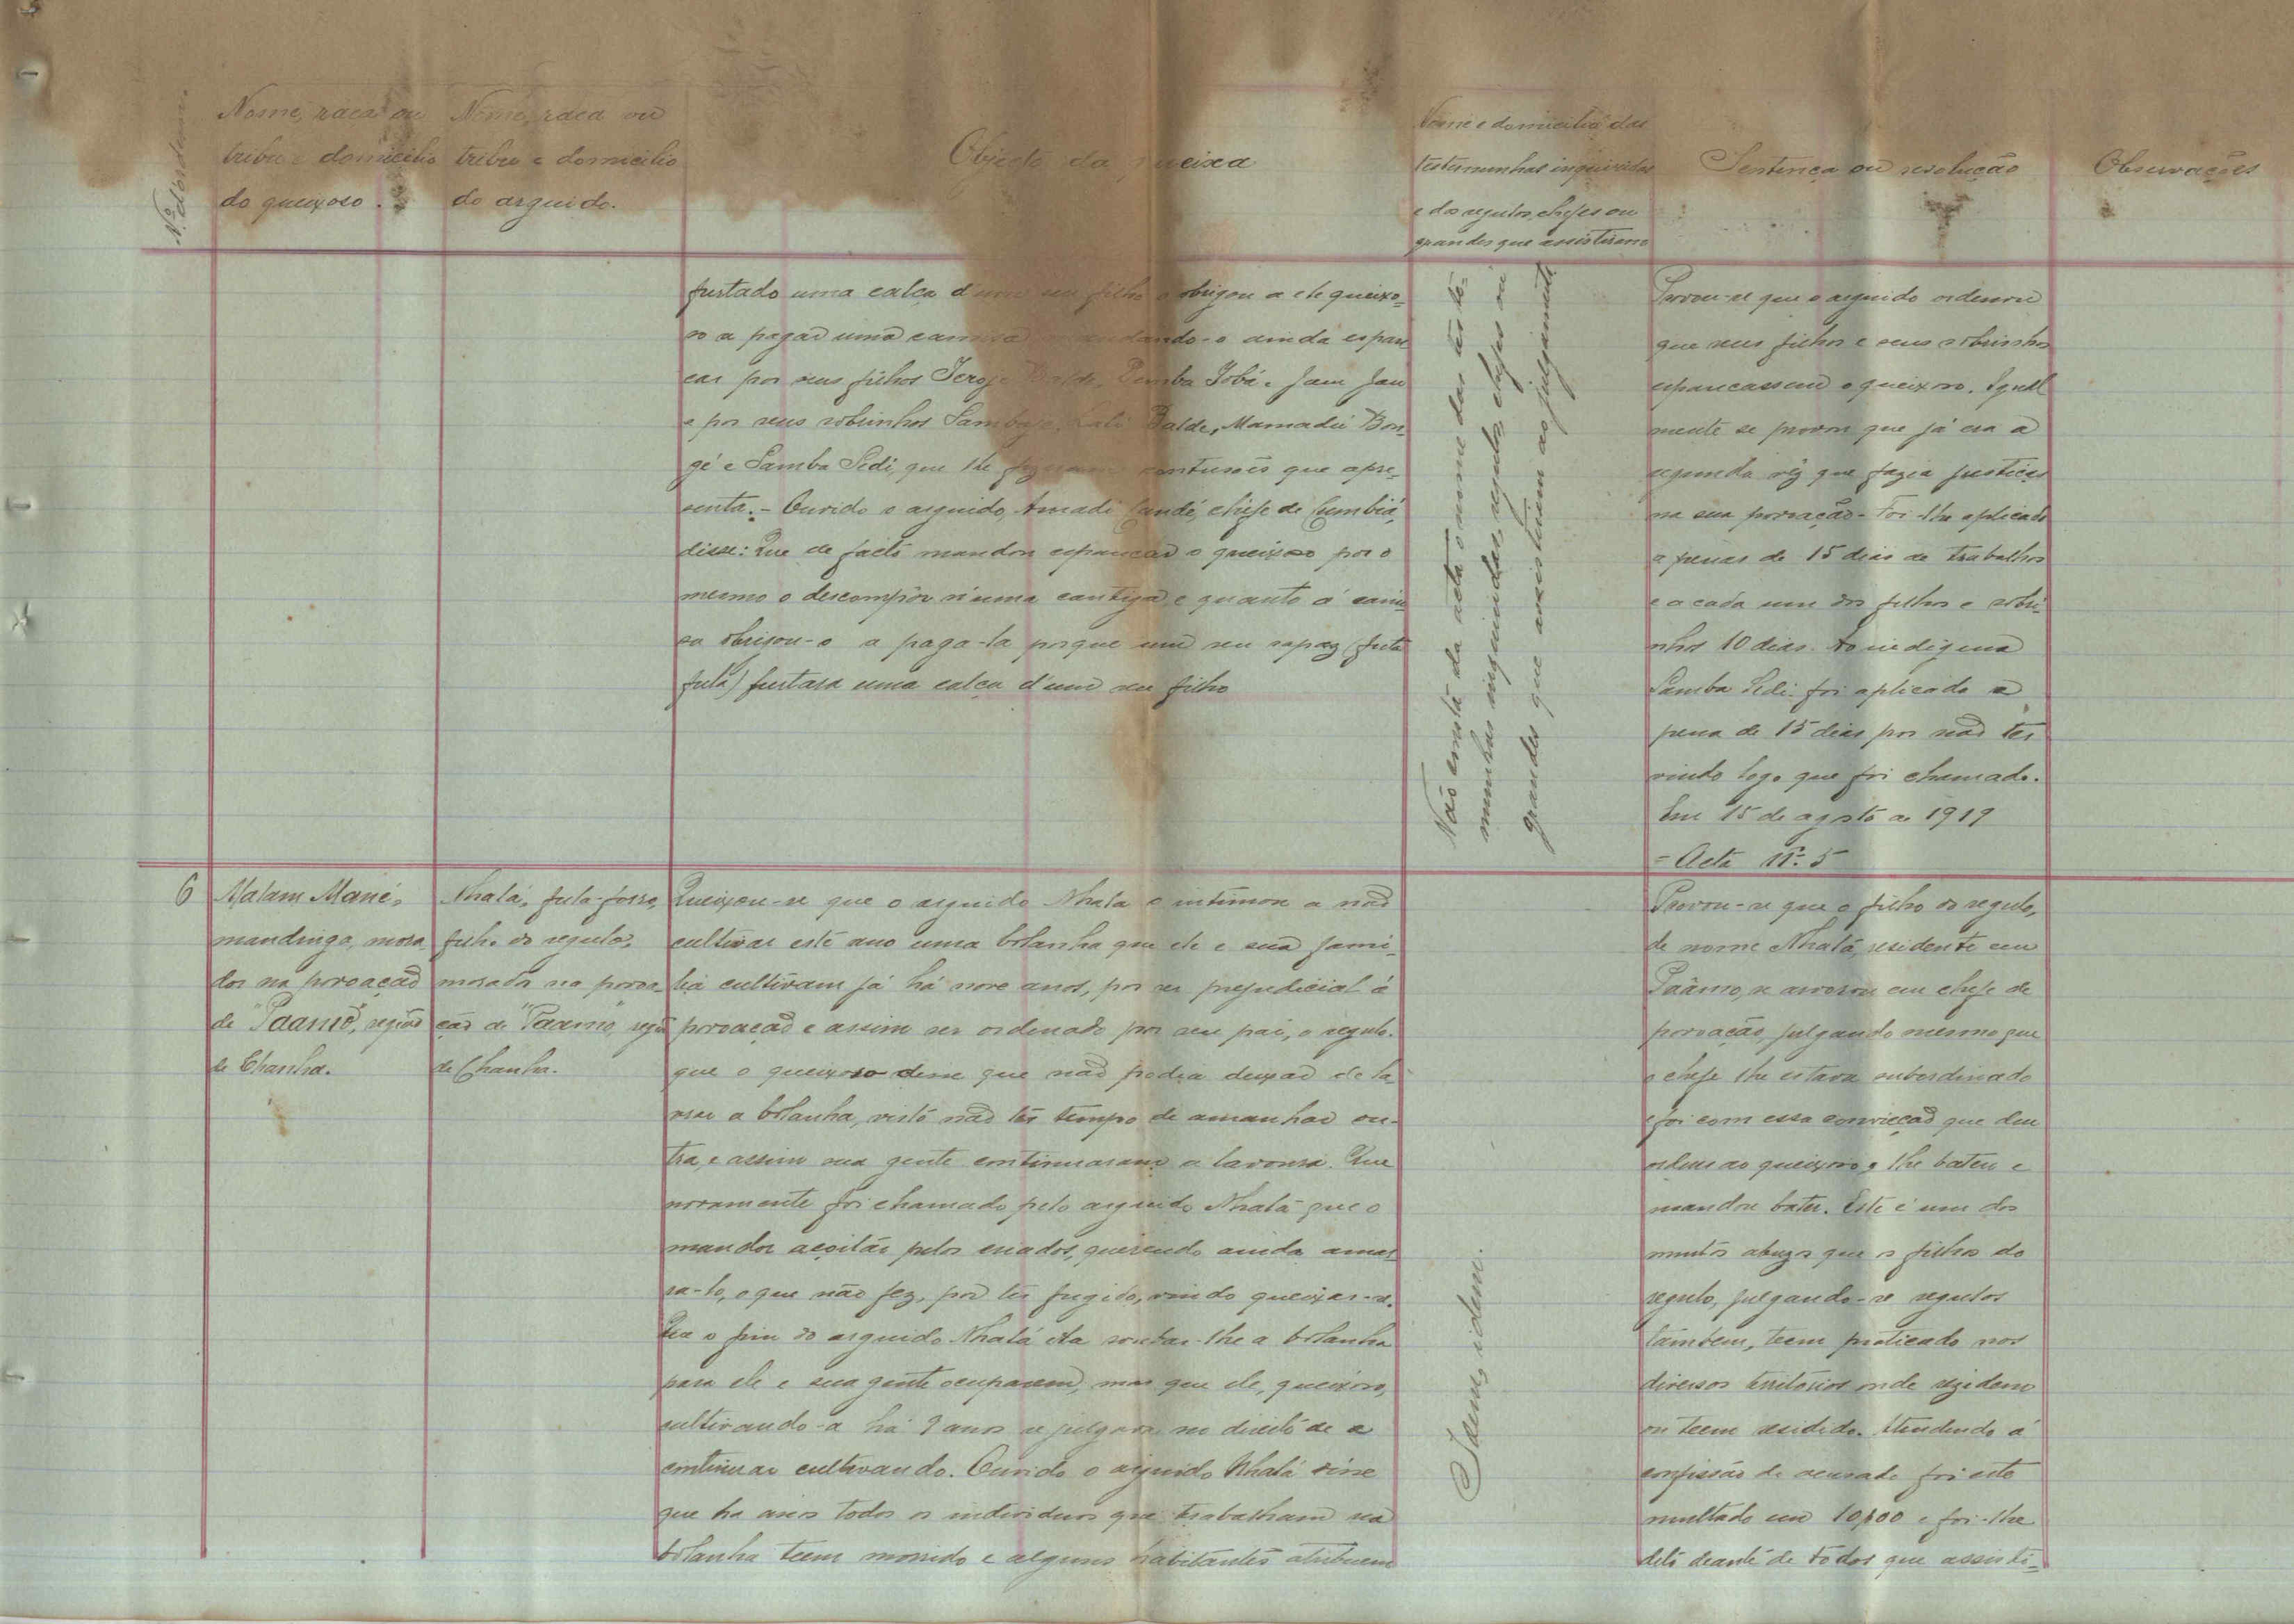 Nº d'ordem
Nome, raça ou
tribu e domicilio
do queixoso.
Nome, raça ou
tribu e domicilio
do arguido.
Objecto da queixa
Nome e domicilio das
testemunhas inqueridas
e dos regulos, chefes ou
grandes que assistiram
Sentença ou resolução
Observações
furtado uma calça d'um seu filho o obrigou a ele queixo-
so a pagar uma camisa mandando-o ainda espan
car por seus filhos Balde, Jobá e Jam Jau
e por seus sobrinhos Balde, Mamadú Bon-
gé e Samba Sedi, que lhe fizeram contusões que apre-
senta. - Ouvido o arguido, Amadi Candé, chefe de Cumbiá,
disse: Que de facto mandou espancar o queixoso por o
mesmo o descompôr n'uma cantiga, e quanto á cami-
sa obrigou-o a paga-la porque um seu rapaz (futa
fula) furtara uma calça d'um seu filho
Não consta da acta o nome das teste-
munhas inqueridas, regulos, chefes ou
grandes que assistiram ao julgamento
Provou-se que o arguido ordenou
que seus filhos e seus sobrinhos
espancassem o queixoso. Igual
mente se provou que já era a
segunda vez que fazia justiças
na sua povoação. Foi-lhe aplicado
a penas de 15 dias de trabalhos
e a cada um dos filhos e sobri-
nhos 10 dias. Ao indigena
Samba Sedi foi aplicado a
pena de 15 dias por não ter
vindo logo que foi chamado.
Em 15 de agosto de 1919
= Acta Nº 5
6
Malam Mané,
mandinga, mora
dor na povoação
de "Paamo", região
de Chanha.
Nhalá, fula-forro,
filho do regulo,
morador na povoa-
ção de "Paamo", região
de Chanha.
Queixou-se que o arguido Nhala o intimou a não
cultivar este ano uma bolanha que ele e sua fami-
lia cultivam já há nove anos, por ser prejudicial á
povoação e assim ser ordenado por seu pai, o regulo.
que o queixoso disse que não podia deixar de la
vrar a bolanha, visto não ter tempo de amanhar ou-
tra, e assim sua gente continuaram a lavoura. Que
novamente foi chamado pelo arguido Nhalá que o
mandou açoitar pelos criados, querendo ainda amar
ra-lo, o que não fez, por ter fugido, vindo queixar-se.
o fim do arguido Nhalá era roubar-lhe a bolanha
para ele e sua gente ocuparem, mas que ele, queixoso,
cultivando-a há 9 anos se julgava no direito de a
continuar cultivando. Ouvido o arguido Nhalá disse
que ha anos todos os individuos que trabalham na
bolanha teem morrido e alguns habitantes atribuem
Idem, idem.
Provou-se que o filho do regulo,
de nome Nhalá, residente em
Paâmo, se arvorou em chefe de
povoação, julgando mesmo que
o chefe lhe estava subordinado
e foi com essa convicção que deu
ordens ao queixoso, lhe bateu e
mandou bater. Este é um dos
muitos abuzos que os filhos do
regulo, julgando-se regulos
tambem, teem praticado nos
diversos territorios onde rezidem
ou teem residido. Atendendo á
confissão do acusado foi este
multado em 10$00 e foi-lhe
dito deante de todos que assisti-